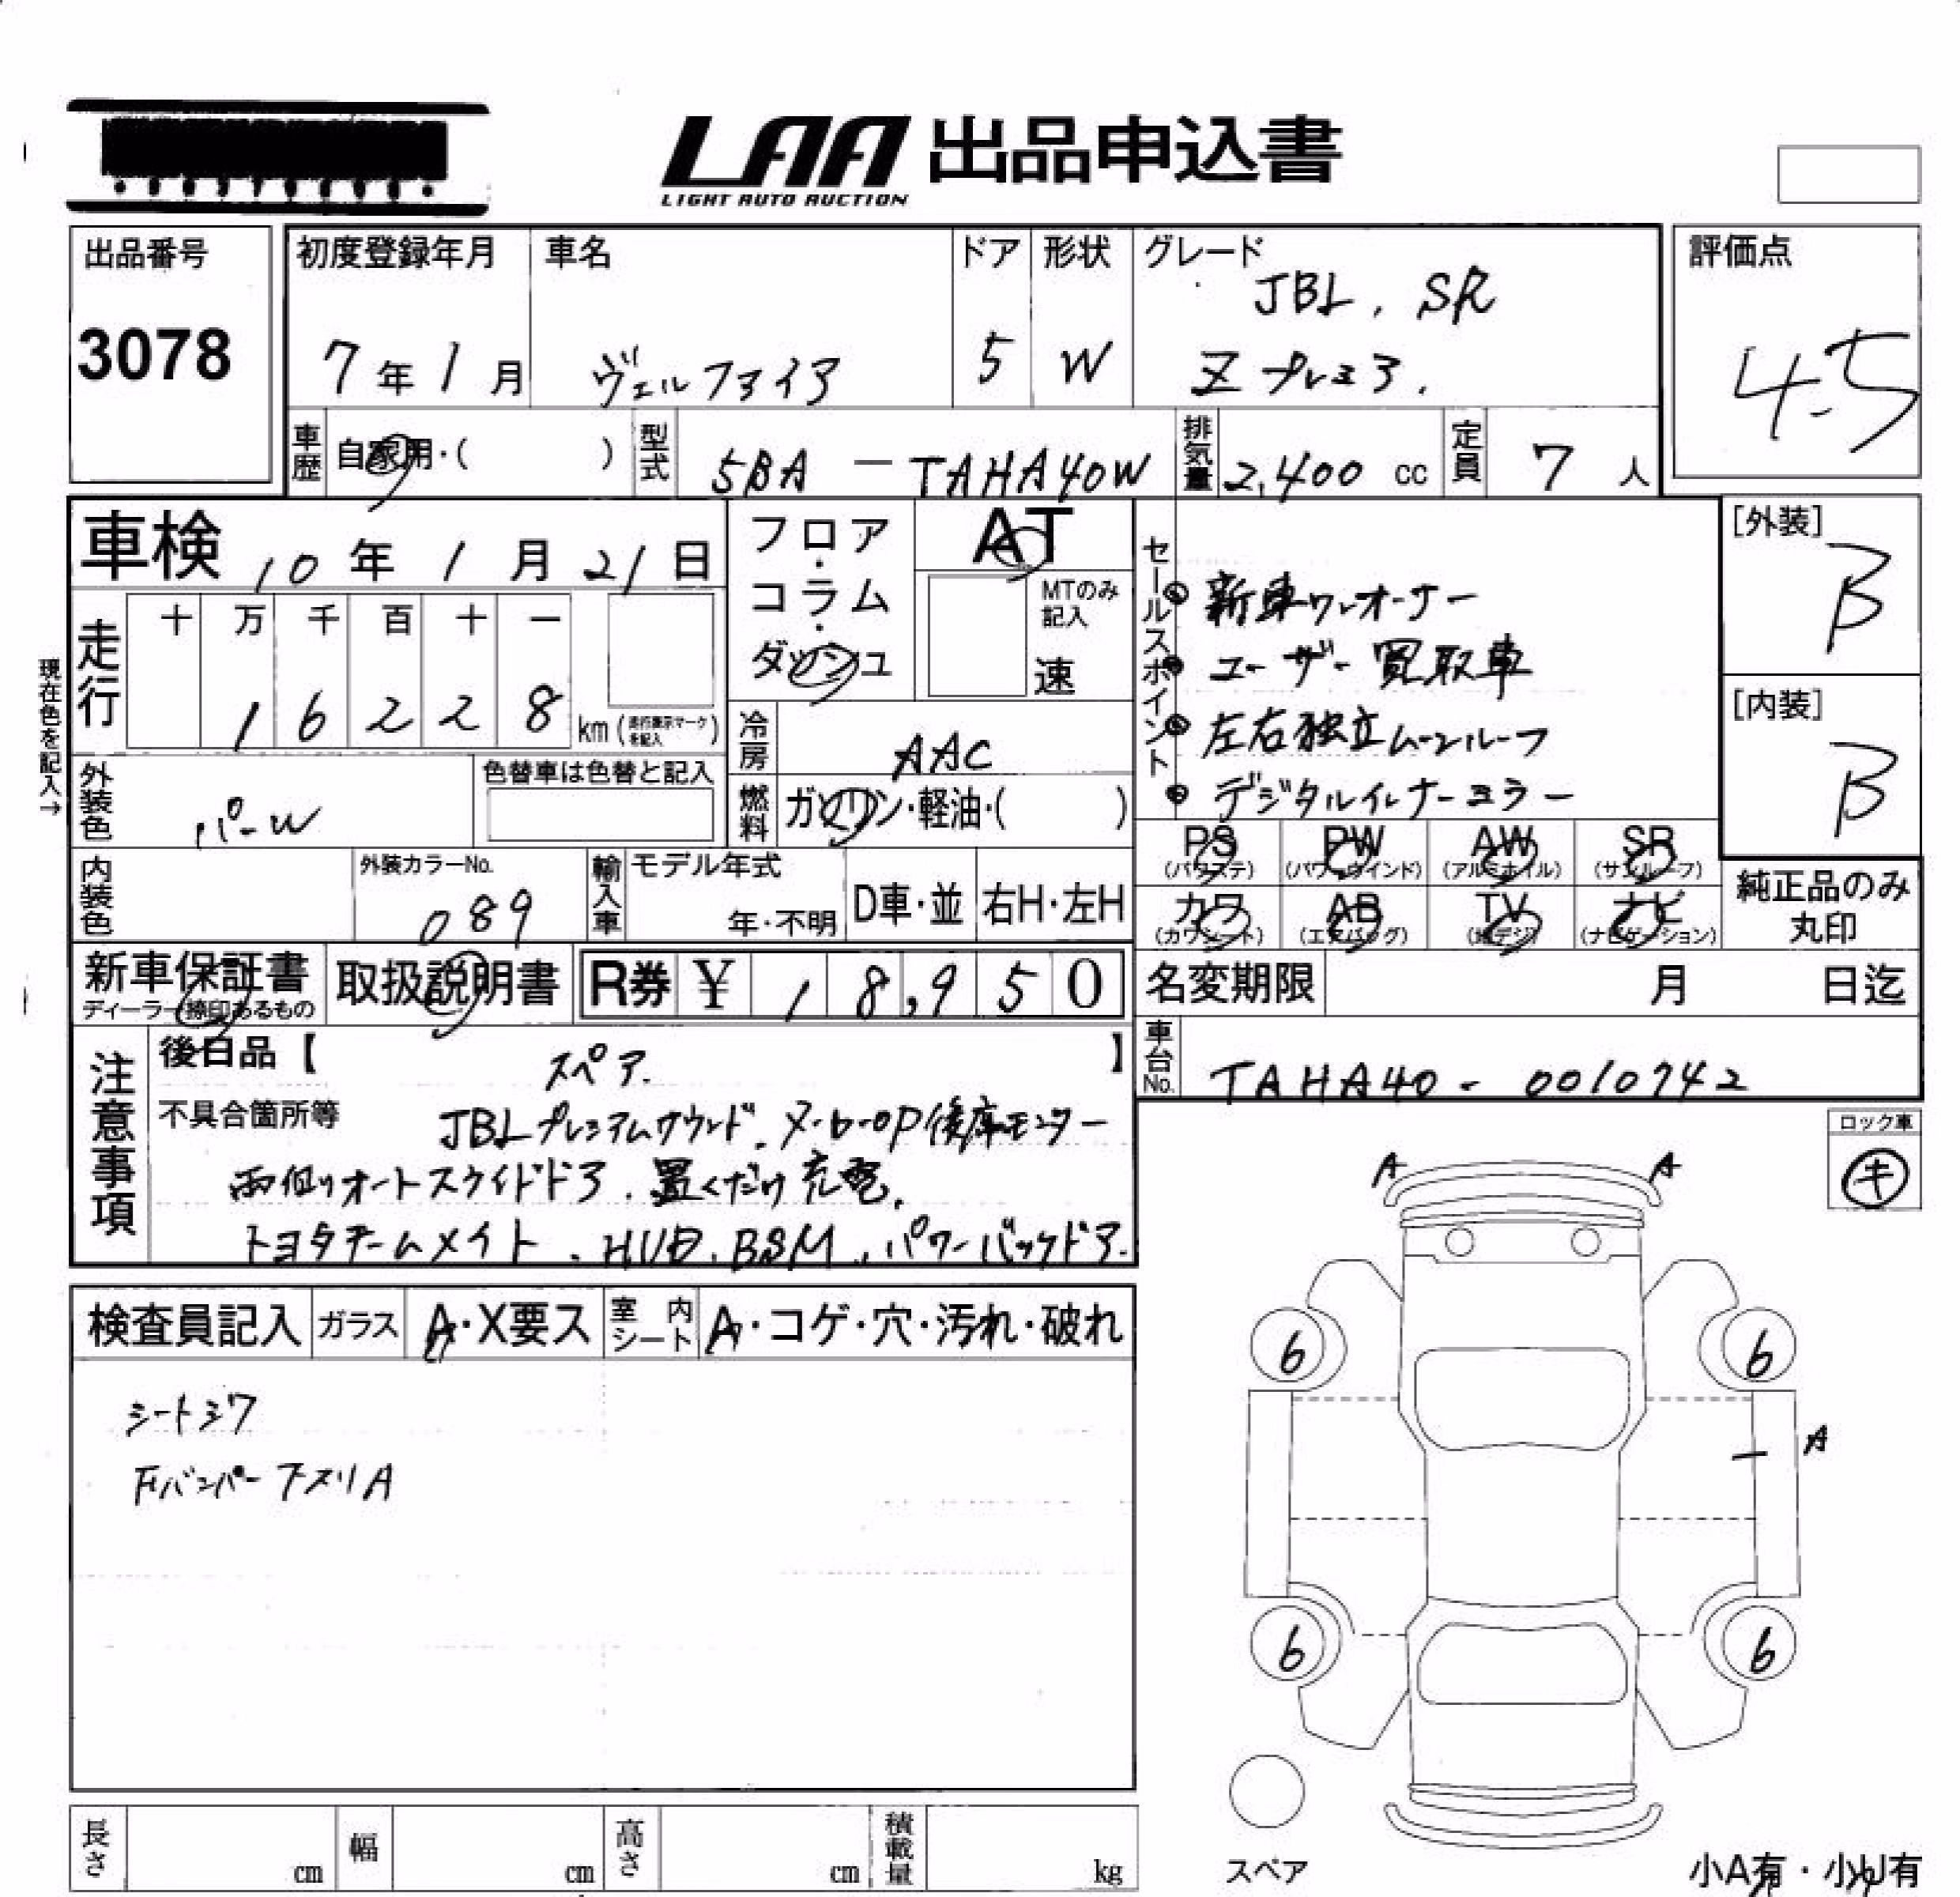 LAA 出品申込書
LIGHT AUTO AUCTION
出品番号
3078
初度登録年月
7年1月
車名
ヴェルファイア
ドア
5
形状
W
グレード
JBL, SR
Zプレミア.
評価点
4.5
車歴
自家用・( )
型式
5BA - TAHA40W
排気量
2,400 cc
定員
7 人
車検 10年1月21日
フロア・コラム・ダッシュ
AT
MTのみ記入
速
走行
十 万 千 百 十 一
1 6 2 2 8 km (走行表示マークを記入)
現在色を記入→
外装色
パーW
色替車は色替と記入
冷房
AAC
燃料
ガソリン・軽油・( )
セールスポイント
新車ワンオーナー
ユーザー買取車
左右独立ムーンルーフ
デジタルインナーミラー
[外装]
B
[内装]
B
PS (パワステ)
PW (パワーウインド)
AW (アルミホイル)
SR (サンルーフ)
カワ (カワシート)
AB (エアバッグ)
TV (地デジ)
ナビ (ナビゲーション)
純正品のみ丸印
内装色
外装カラーNo.
089
輸入車
モデル年式
年・不明
D車・並
右H・左H
新車保証書
ディーラー捺印あるもの
取扱説明書
R券 ¥ 18,950
名変期限 月 日迄
車台No.
TAHA40-0010742
注意事項
後日品【 スペア. 】
不具合箇所等
JBLプレミアムサウンド. メーカーOP後席モニター
両側オートスライドドア. 置くだけ充電.
トヨタチームメイト. HUD. BSM. パワーバックドア.
ロック車
キ
検査員記入
ガラス
A・X要ス
室内シート
A・コゲ・穴・汚れ・破れ
シートシワ
Fバンパー下スリA
A A
6 6
A
6 6
スペア
小A有・小U有
長さ cm
幅 cm
高さ cm
積載量 kg